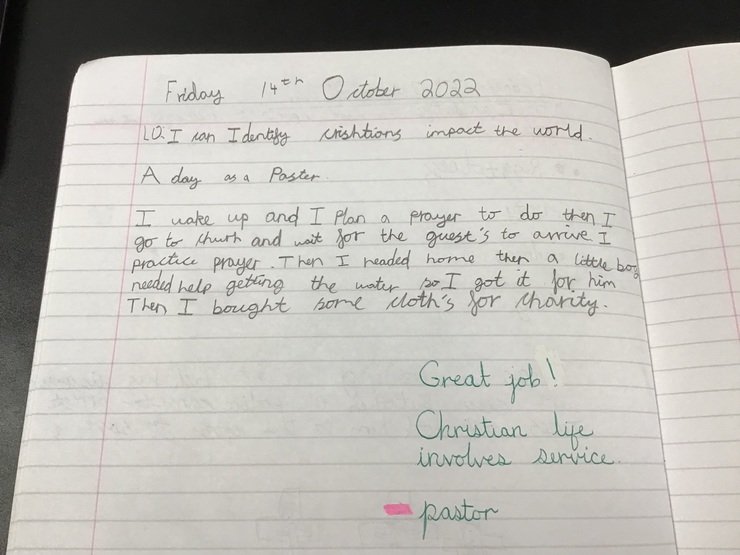 Friday 14th October 2022
LO: I can Identify crishtions impact the world.
A day as a Paster.
I wake up and I Plan a prayer to do then I
go to churh and wait for the guest's to arrive I
practice prayer. Then I headed home then a little boy
needed help getting the water so I got it for him
Then I bought some cloth's for charity.
Great job!
Christian life
involves service.
pastor